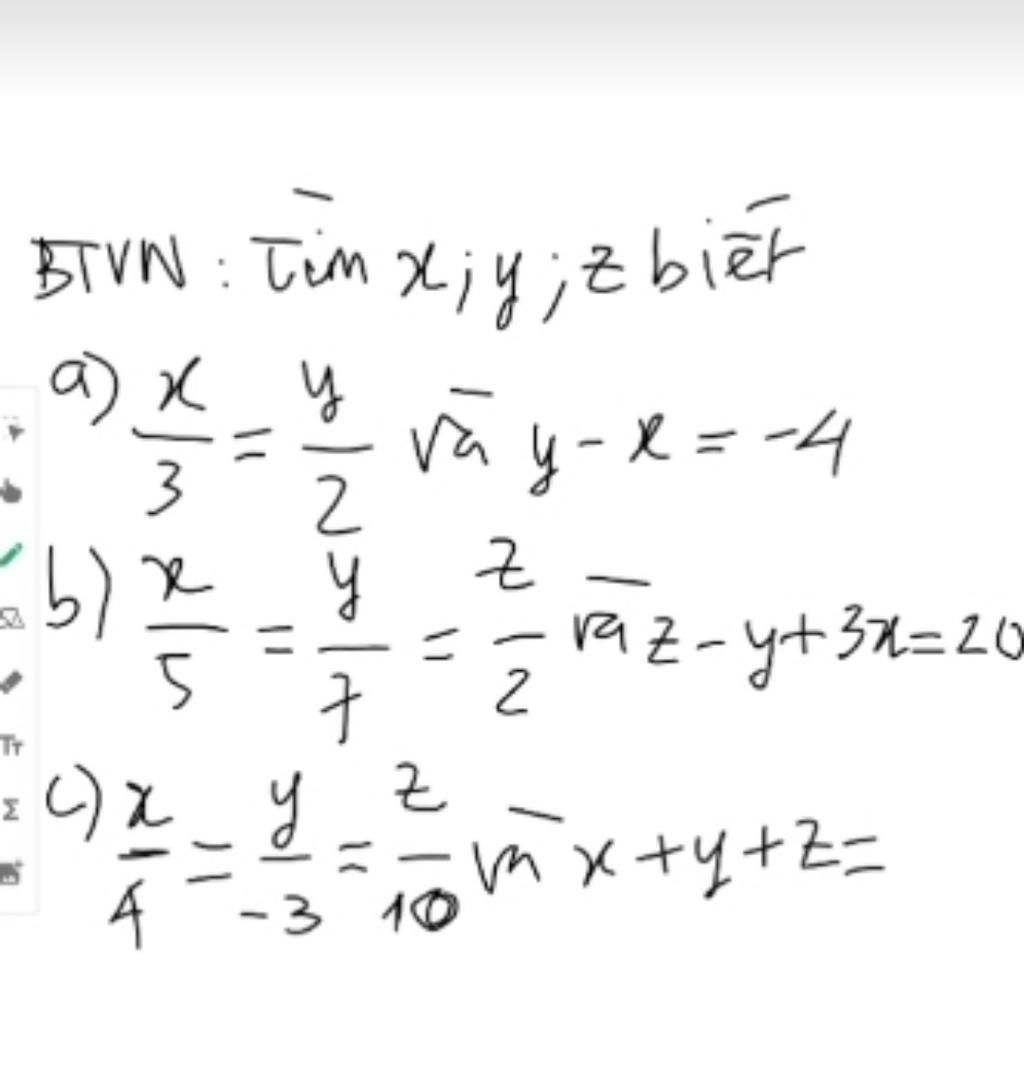 BTVN : Tìm x; y; z biết
a) x/3 = y/2 và y - x = -4
b) x/5 = y/7 = z/2 và z - y + 3x = 20
c) x/4 = y/-3 = z/10 và x + y + z =